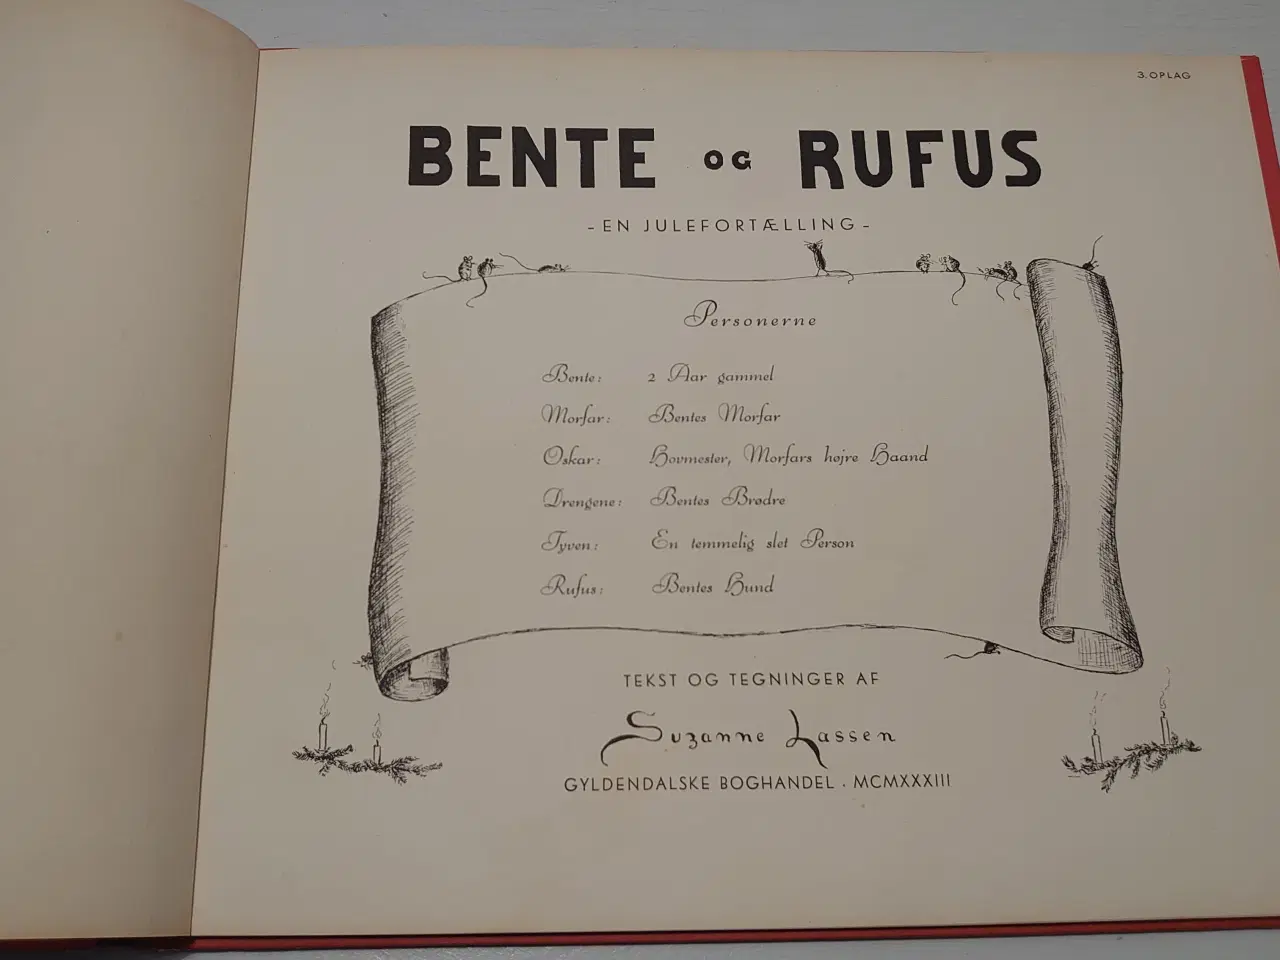 3. OPLAG
BENTE OG RUFUS
- EN JULEFORTÆLLING -
Personerne
Bente: 2 Aar gammel
Morfar: Bentes Morfar
Oskar: Hovmester, Morfars højre Haand
Drengene: Bentes Brødre
Tyven: En temmelig slet Person
Rufus: Bentes Hund
TEKST OG TEGNINGER AF
Suzanne Lassen
GYLDENDALSKE BOGHANDEL · MCMXXXIII